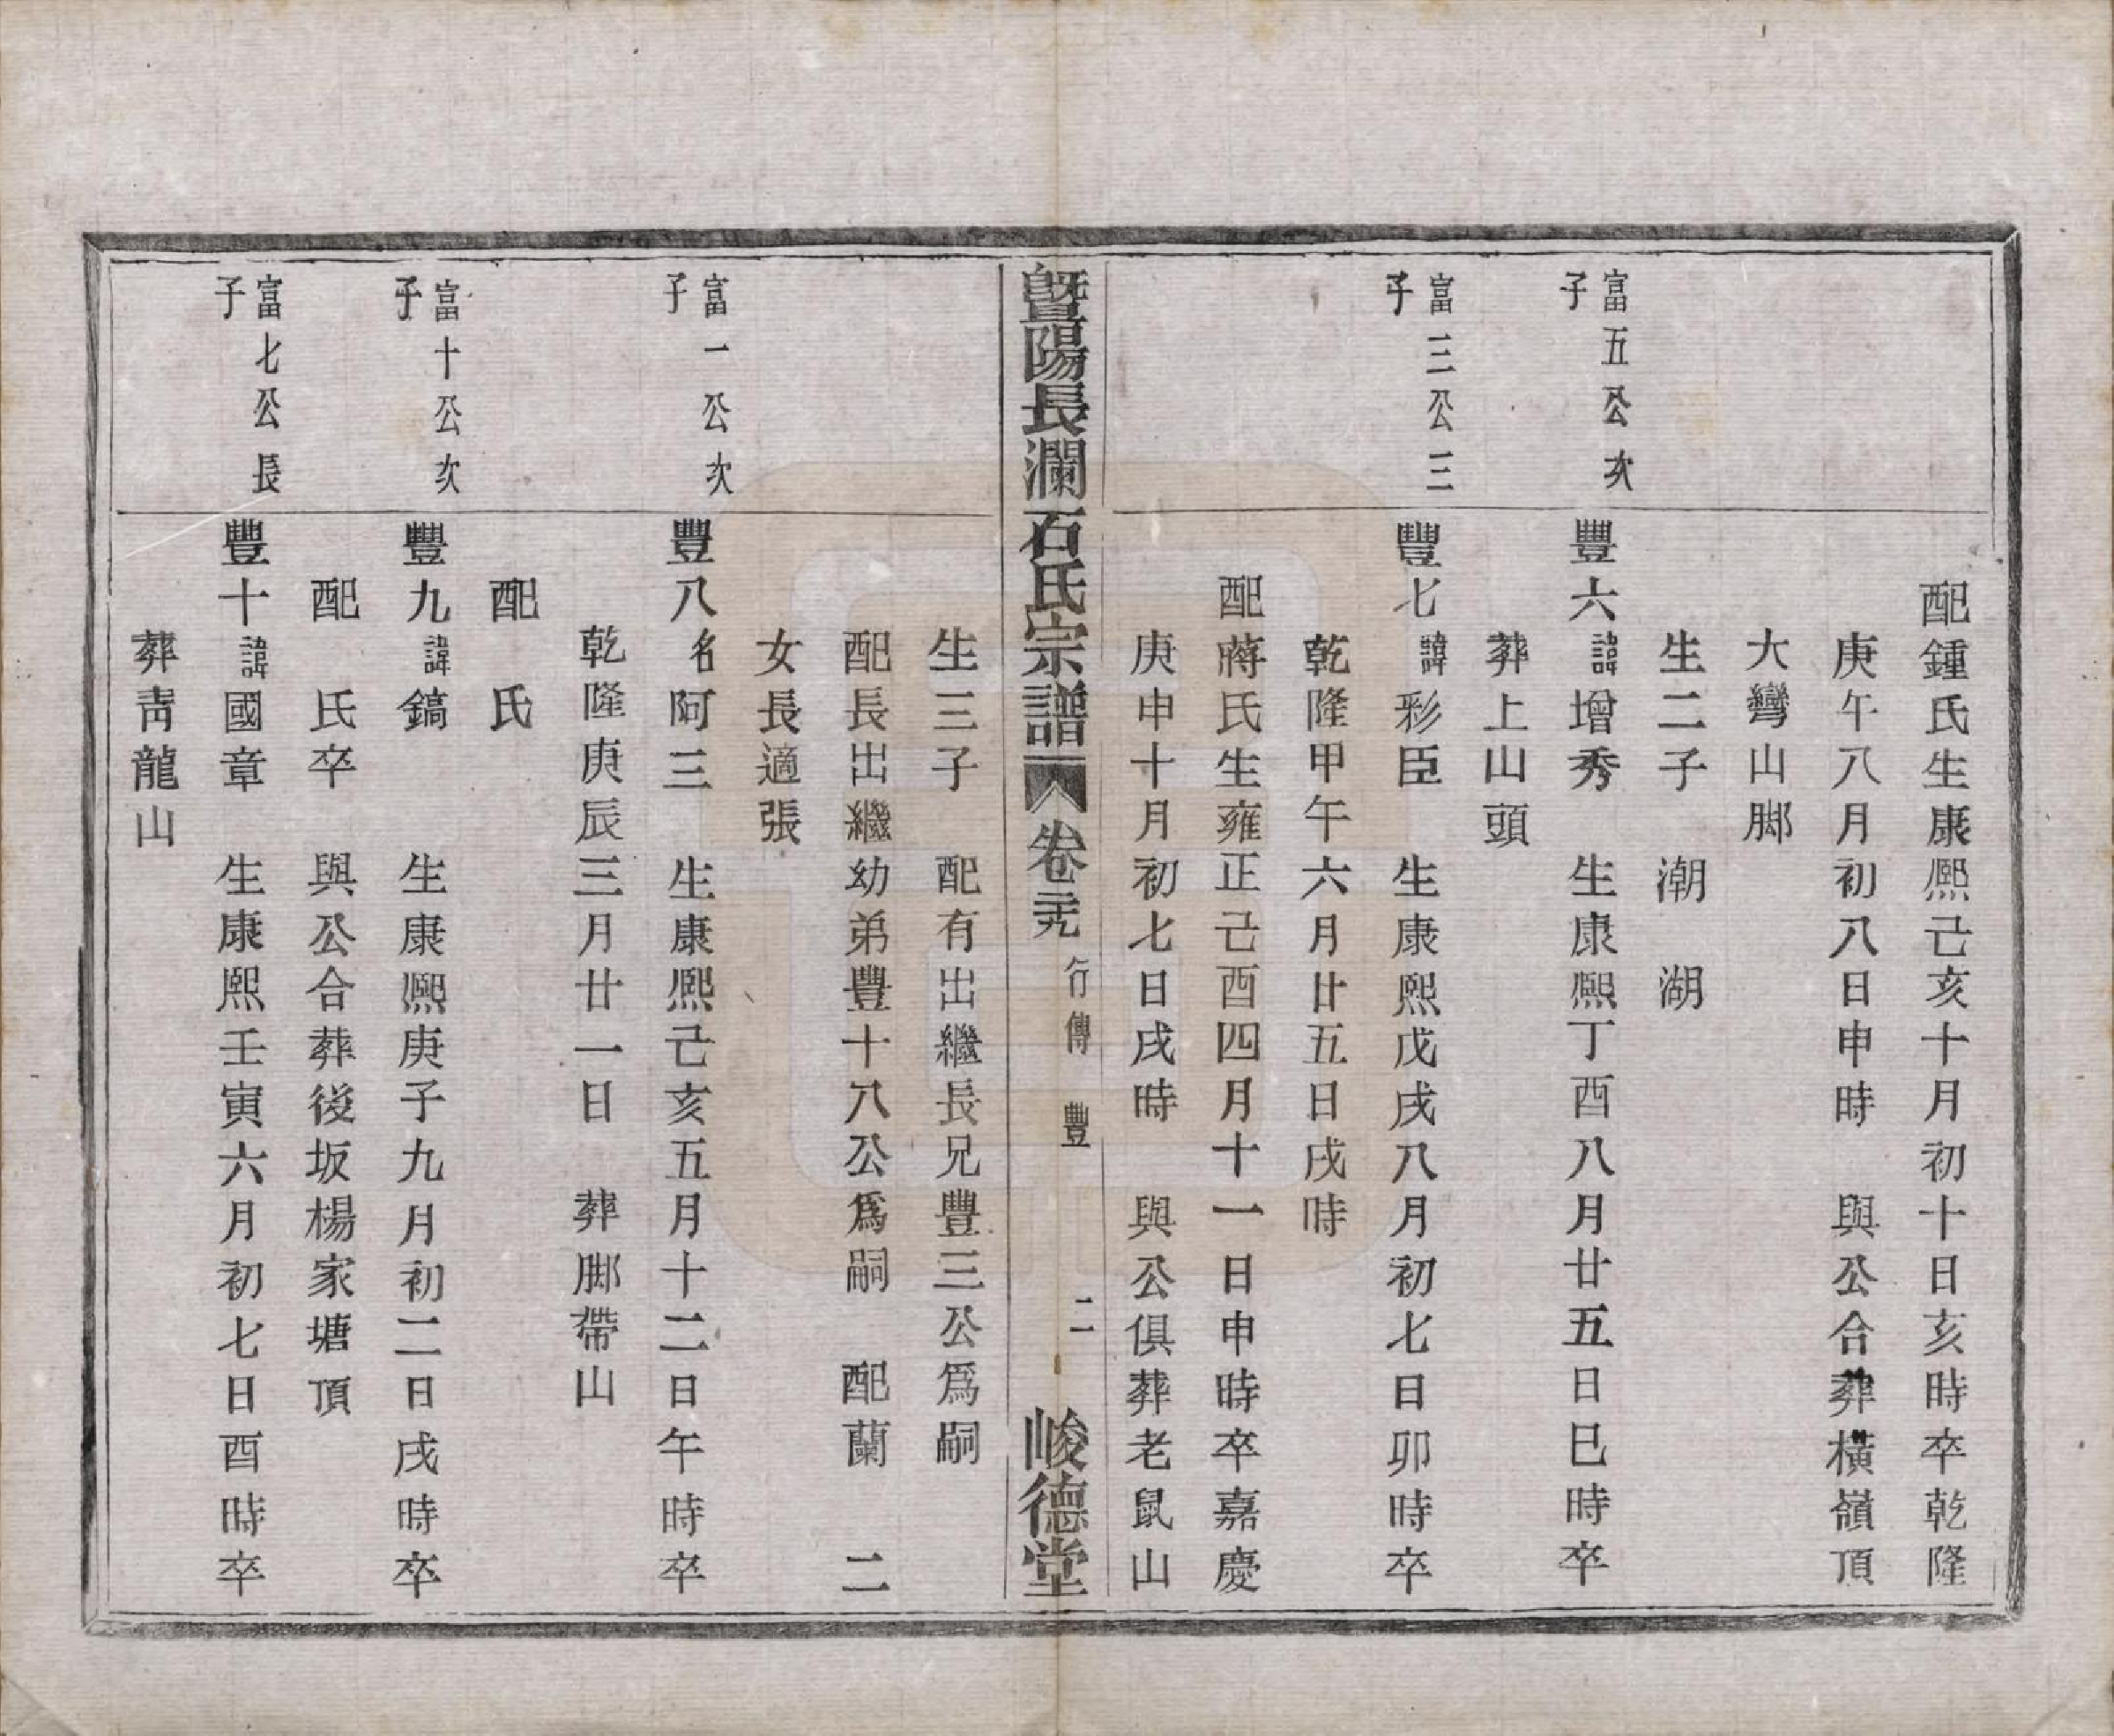 配鍾氏生康熙己亥十月初十日亥時卒乾隆
庚午八月初八日申時　與公合葬橫嶺頂
大彎山脚
生二子　潮　湖
富五公次子
豐六諱增秀　生康熙丁酉八月廿五日巳時卒
葬上山頭
富三公三子
豐七諱彩臣　生康熙戊戌八月初七日卯時卒
乾隆甲午六月廿五日戌時
配蔣氏生雍正己酉四月十一日申時卒嘉慶
庚申十月初七日戌時　與公俱葬老鼠山
暨陽長瀾石氏宗譜　卷二十九　行傳　豐　二　峻德堂
生三子　配有出繼長兄豐三公爲嗣
配長出繼幼弟豐十八公爲嗣　配蘭　二
女長適張
富一公次子
豐八名阿三　生康熙己亥五月十二日午時卒
乾隆庚辰三月廿一日　葬脚帶山
配　氏
富十公次子
豐九諱鎬　生康熙庚子九月初二日戌時卒
配　氏卒　與公合葬後坂楊家塘頂
富七公長子
豐十諱國章　生康熙壬寅六月初七日酉時卒
葬靑龍山